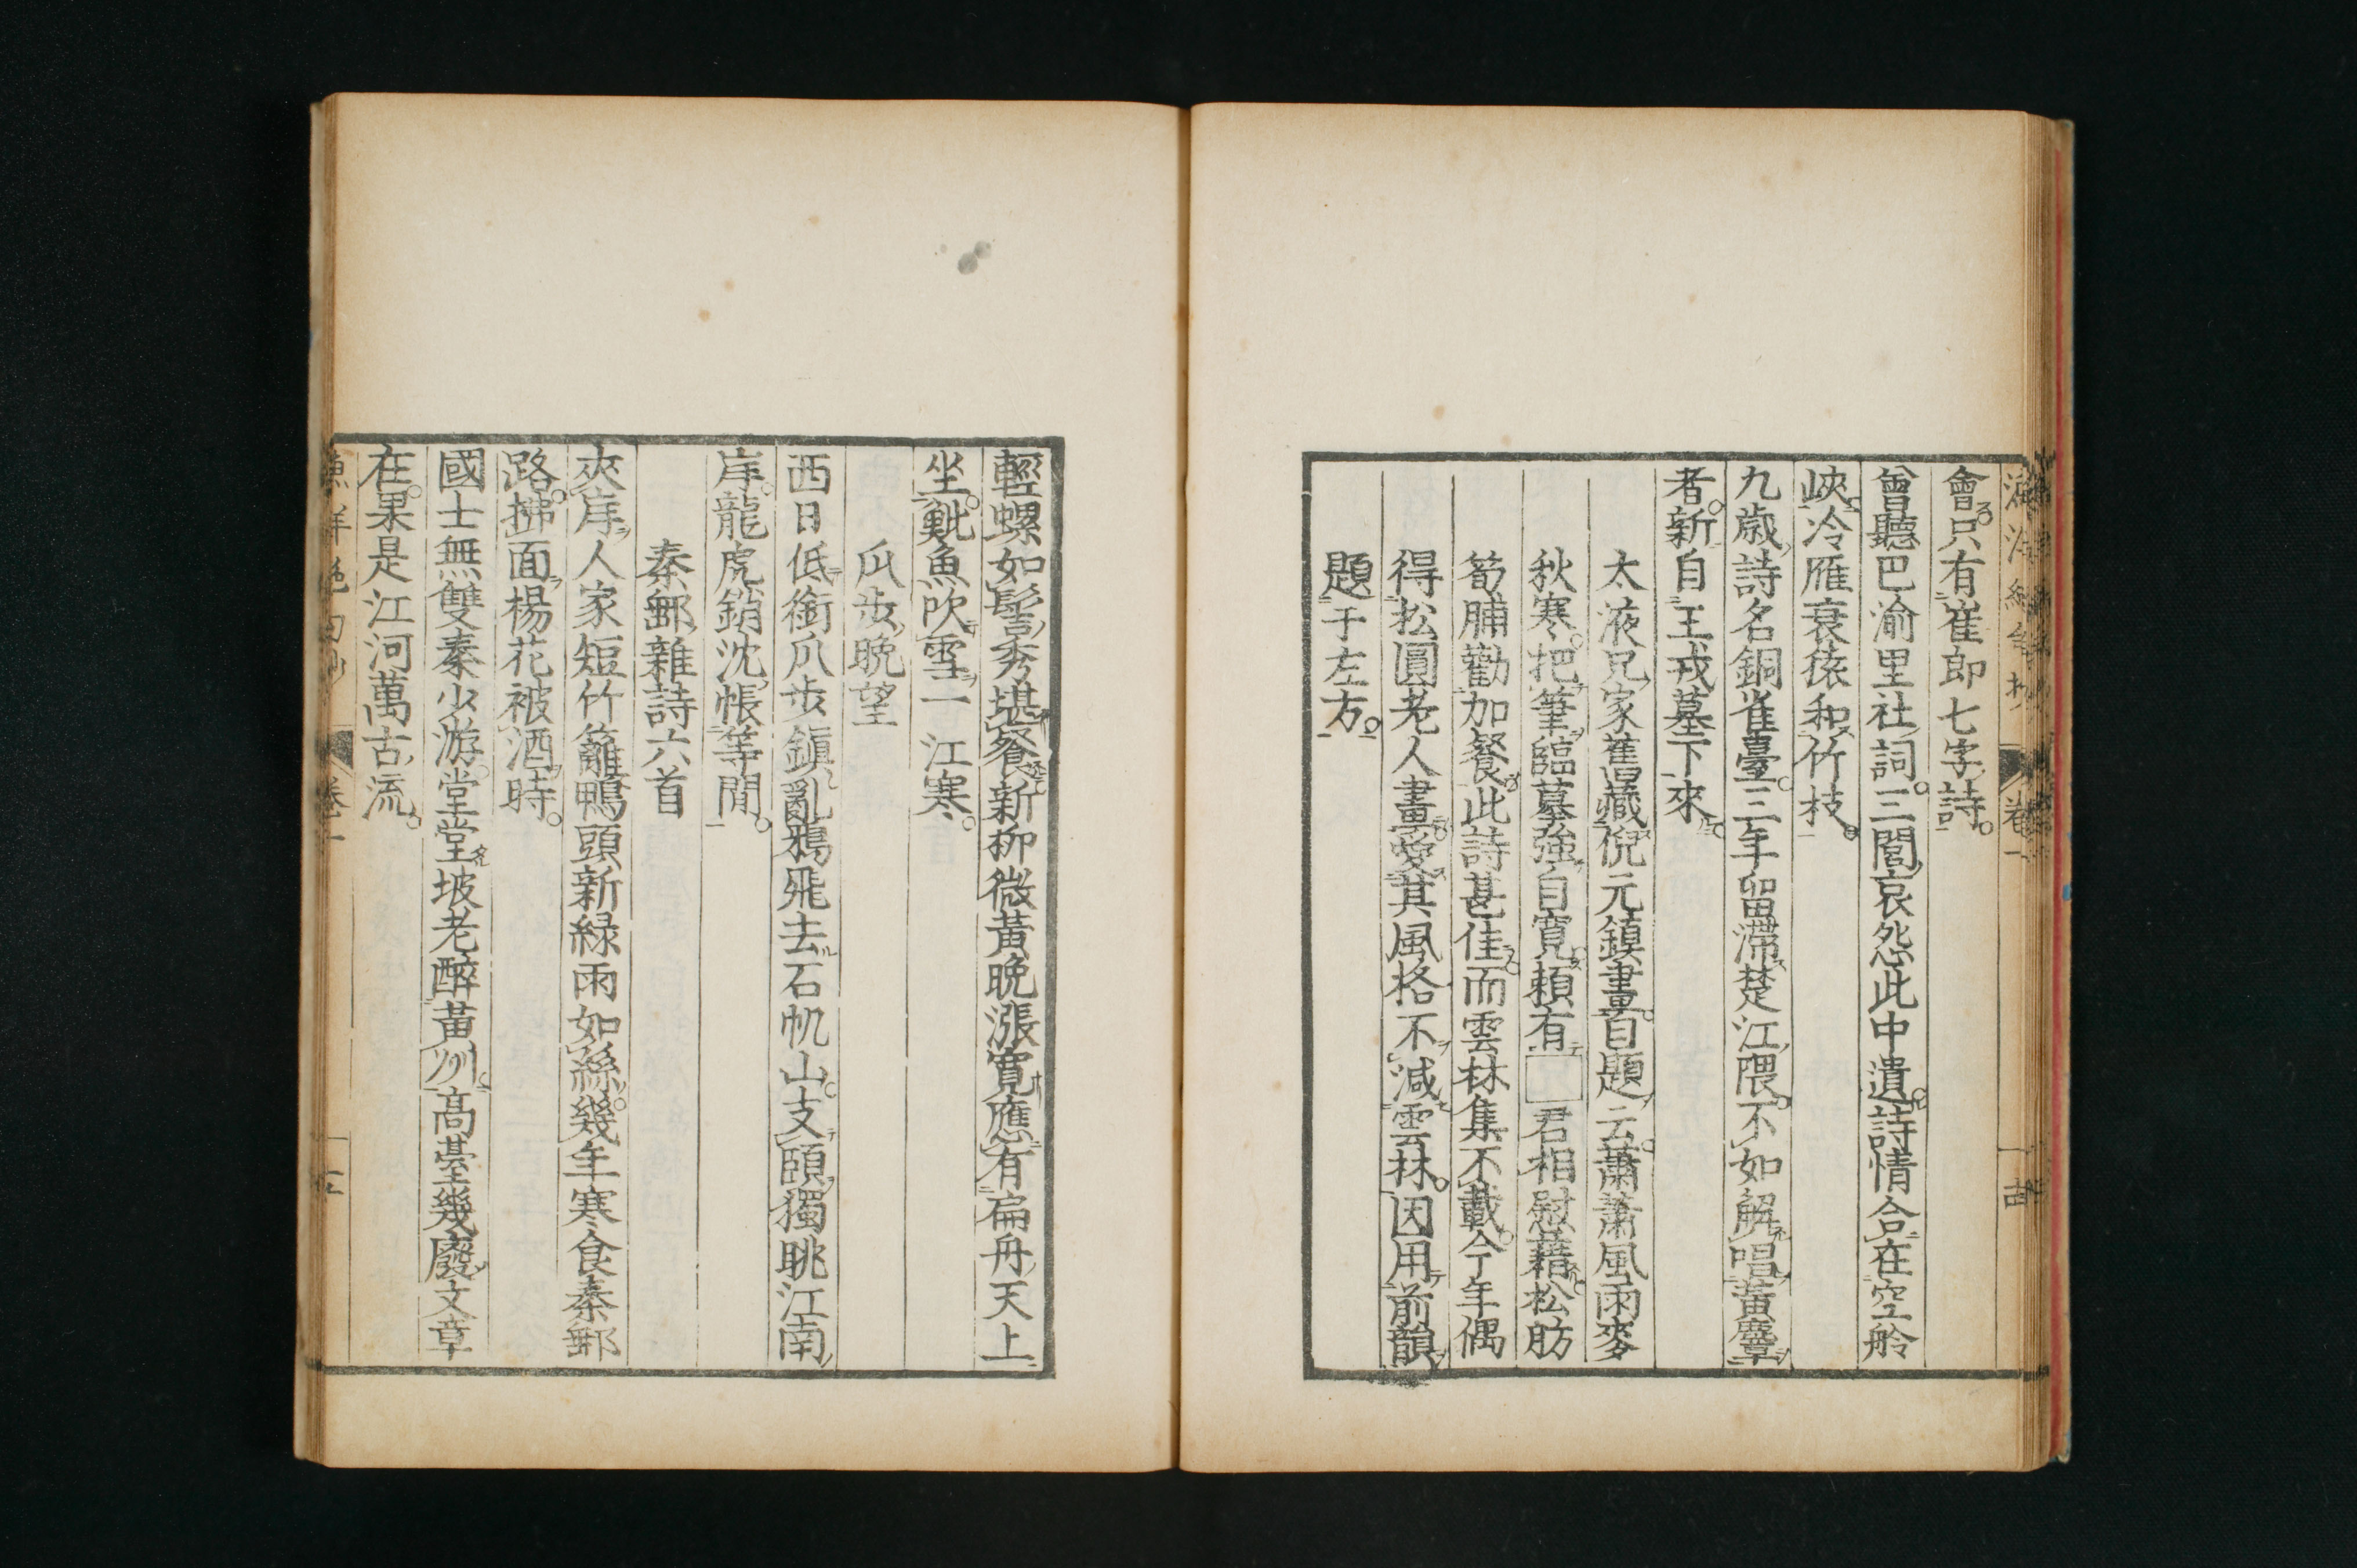 會只有崔郎七字詩
曾聽巴渝里社詞三閭哀怨此中遺詩情合在空舲
峽冷雁哀猿和竹枝
九歲詩名銅雀臺三年留滯楚江隈不如解唱黃麞
者新自王戎墓下來
太液兄家舊藏倪元鎮畫自題云蕭蕭風雨麥
秋寒把筆臨摹強自寬賴有君相慰藉松肪
筍脯勸加餐此詩甚佳而雲林集不載今年偶
得松圓老人畫愛其風格不減雲林因用前韻
題于左方
卷一
輕螺如髻秀堪餐新柳微黃晚漲寬應有扁舟天上
坐魮魚吹雪一江寒
瓜步晚望
西日低銜爪步鎭亂鴉飛去石帆山支頤獨眺江南
岸龍虎銷沈悵等閒
秦郵雜詩六首
夾岸人家短竹籬鴨頭新綠雨如絲幾年寒食秦郵
路拂面楊花被酒時
國士無雙秦少游堂堂坡老醉黃州高臺幾廢文章
在果是江河萬古流
卷一